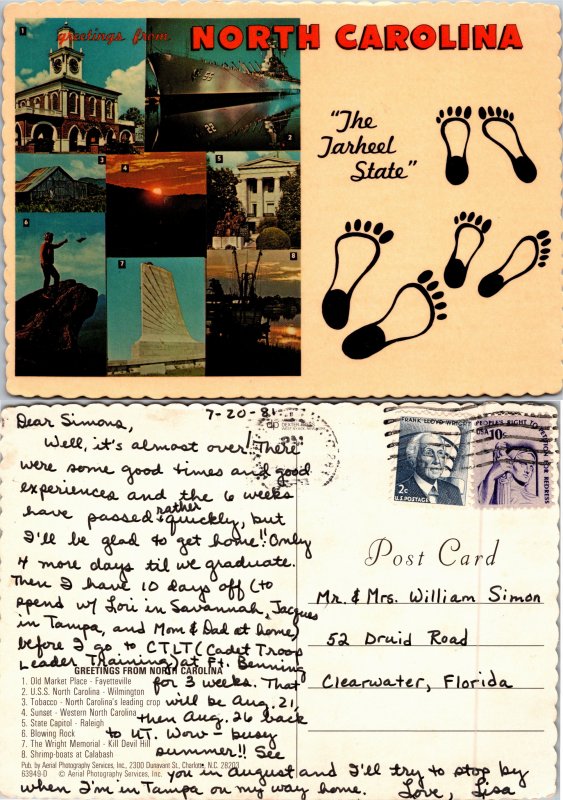 1
greetings from NORTH CAROLINA
55
2
"The
Tarheel
State"
3
4
5
6
7
8
7-20-81
Dear Simons,
Well, it's almost over!! There
were some good times and good
experiences and the 6 weeks
have passed rather quickly, but
I'll be glad to get home!! Only
4 more days til we graduate.
Then I have 10 days off (to
spend w/ Lori in Savannah, Jacques
in Tampa, and Mom & Dad at home)
before I go to CTLT (Cadet Troop
Leader Training) at Ft. Benning
for 3 weeks. That
will be Aug. 21,
then Aug. 26 back
to UT. Wow - busy
summer!! See
you in august and I'll try to stop by
when I'm in Tampa on my way home. Love, Lisa
GREETINGS FROM NORTH CAROLINA
1. Old Market Place - Fayetteville
2. U.S.S. North Carolina - Wilmington
3. Tobacco - North Carolina's leading crop
4. Sunset - Western North Carolina
5. State Capitol - Raleigh
6. Blowing Rock
7. The Wright Memorial - Kill Devil Hill
8. Shrimp-boats at Calabash
Pub. by Aerial Photography Services, Inc., 2300 Dunavant St., Charlotte, N.C. 28203
63949-D © Aerial Photography Services, Inc.
dp
PM
FRANK LLOYD WRIGHT
2c
U.S. POSTAGE
PEOPLE'S RIGHT TO PETITION FOR REDRESS
USA 10c
Post Card
Mr. & Mrs. William Simon
52 Druid Road
Clearwater, Florida